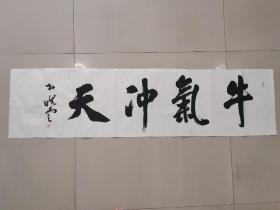 牛氣沖天